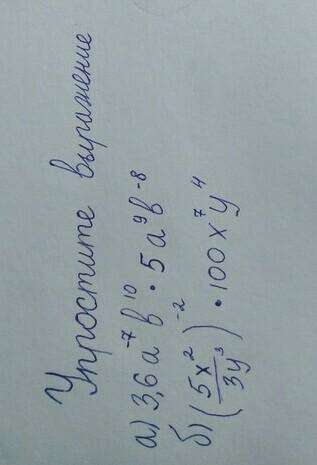 Упростите выражение
а) 3,6a⁻⁷b¹⁰ · 5a⁹b⁻⁸
б) (5x²/3y³)⁻² · 100x⁷y⁴